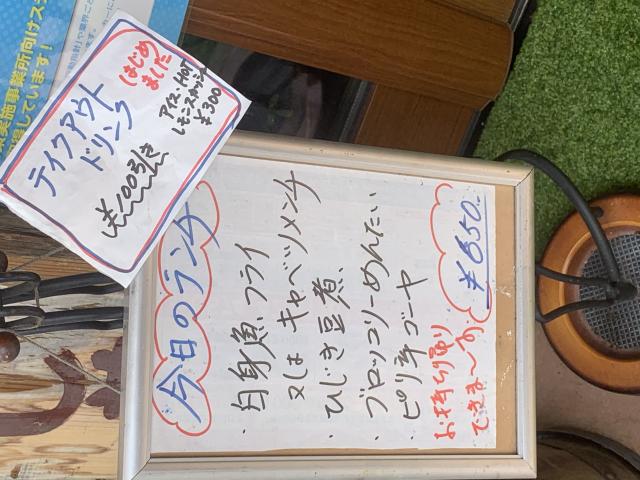 はじめ
ました
テイクアウト
ドリンク
¥100引き
アイス・HOT
¥300
今日のランチ
・白身魚フライ
又は キャベツメンチ
・ひじき豆煮、
・ブロッコリーめんたい
・ピリ辛ゴーヤ
お持ち帰り
できま〜す
¥650.-
実施事業所向けス
しています!